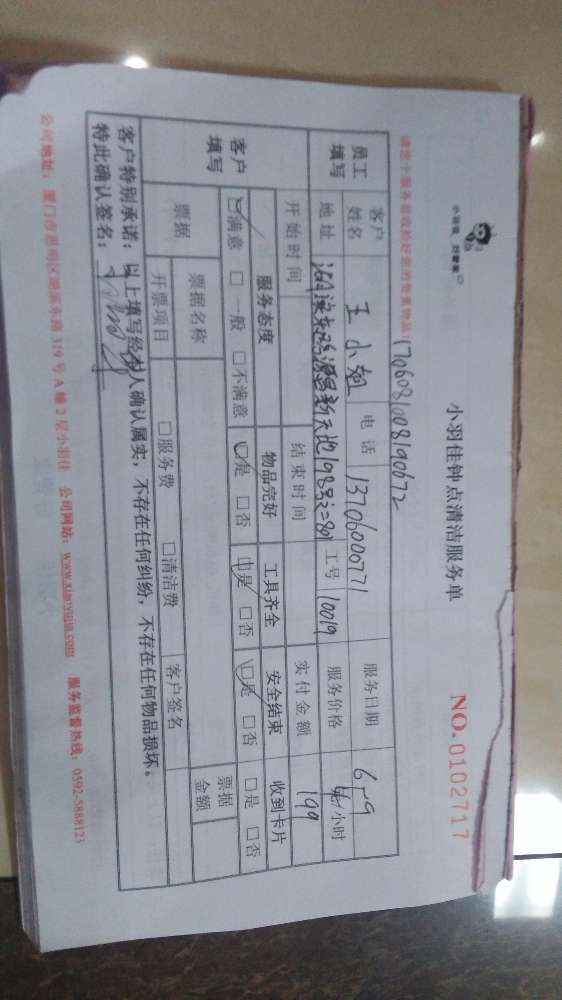 小羽佳钟点清洁服务单
NO.0102717
请您于服务前收拾好您的贵重物品! 1706081008190672
员工填写 客户姓名 王小姐 电话 13706000771 服务日期 6-9
地址 新天地198号 工号 10019 服务价格 /小时
开始时间 结束时间 实付金额 199
客户填写 服务态度 物品完好 工具齐全 安全结束 收到卡片
☑满意 □一般 □不满意 ☑是 □否 ☑是 □否 ☑是 □否 □是 □否
票据 票据名称 票据金额
开票项目 □服务费 □清洁费 客户签名
客户特别承诺:以上填写经本人确认属实,不存在任何纠纷,不存在任何物品损坏。
特此确认签名:
公司地址:厦门市思明区湖滨东路 319 号 A 幢 2 层小羽佳 公司网站:www.xiaoyujia.com 服务监督热线:0592-5888123